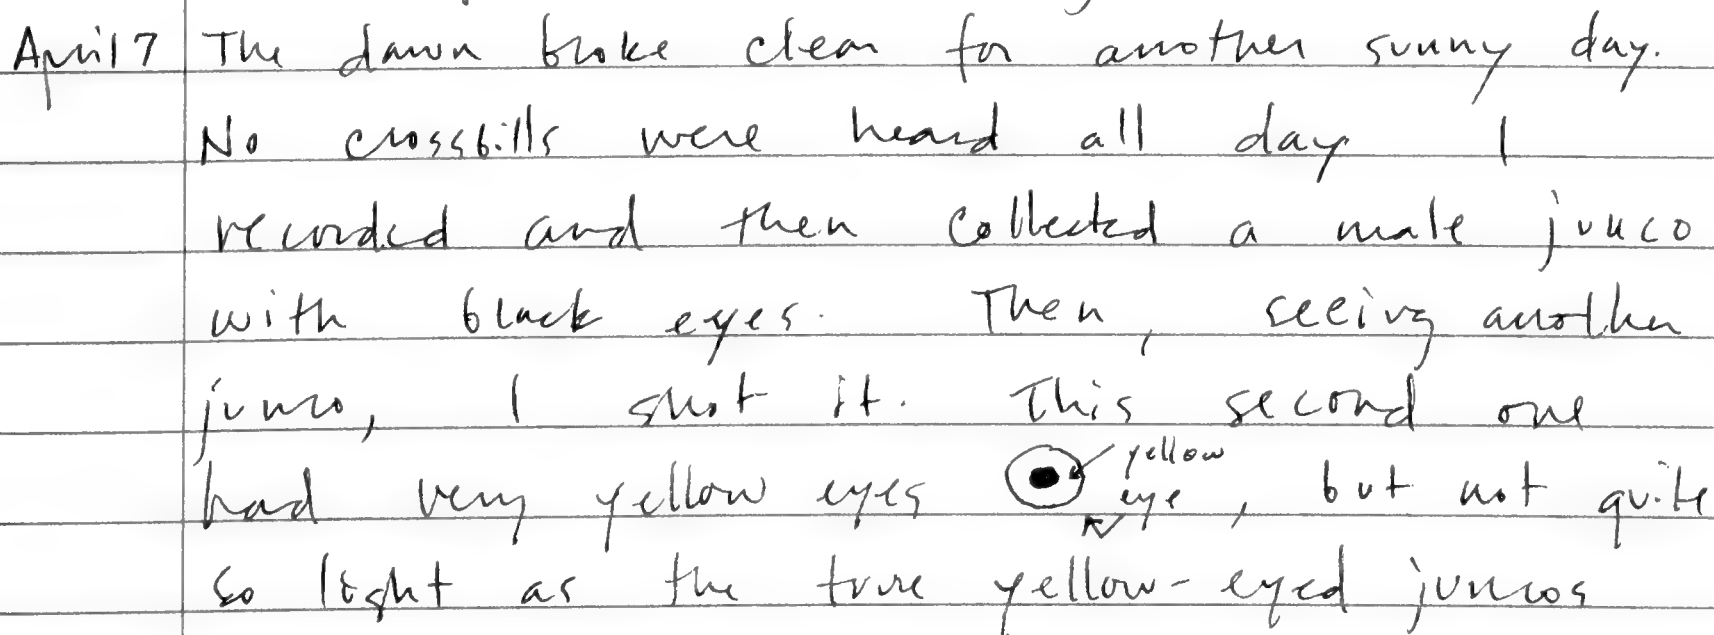 April 7 The dawn broke clear for another sunny day.
No crossbills were heard all day I
recorded and then collected a male junco
with black eyes. Then, seeing another
junco, I shot it. This second one
had very yellow eyes yellow eye, but not quite
so light as the true yellow-eyed juncos